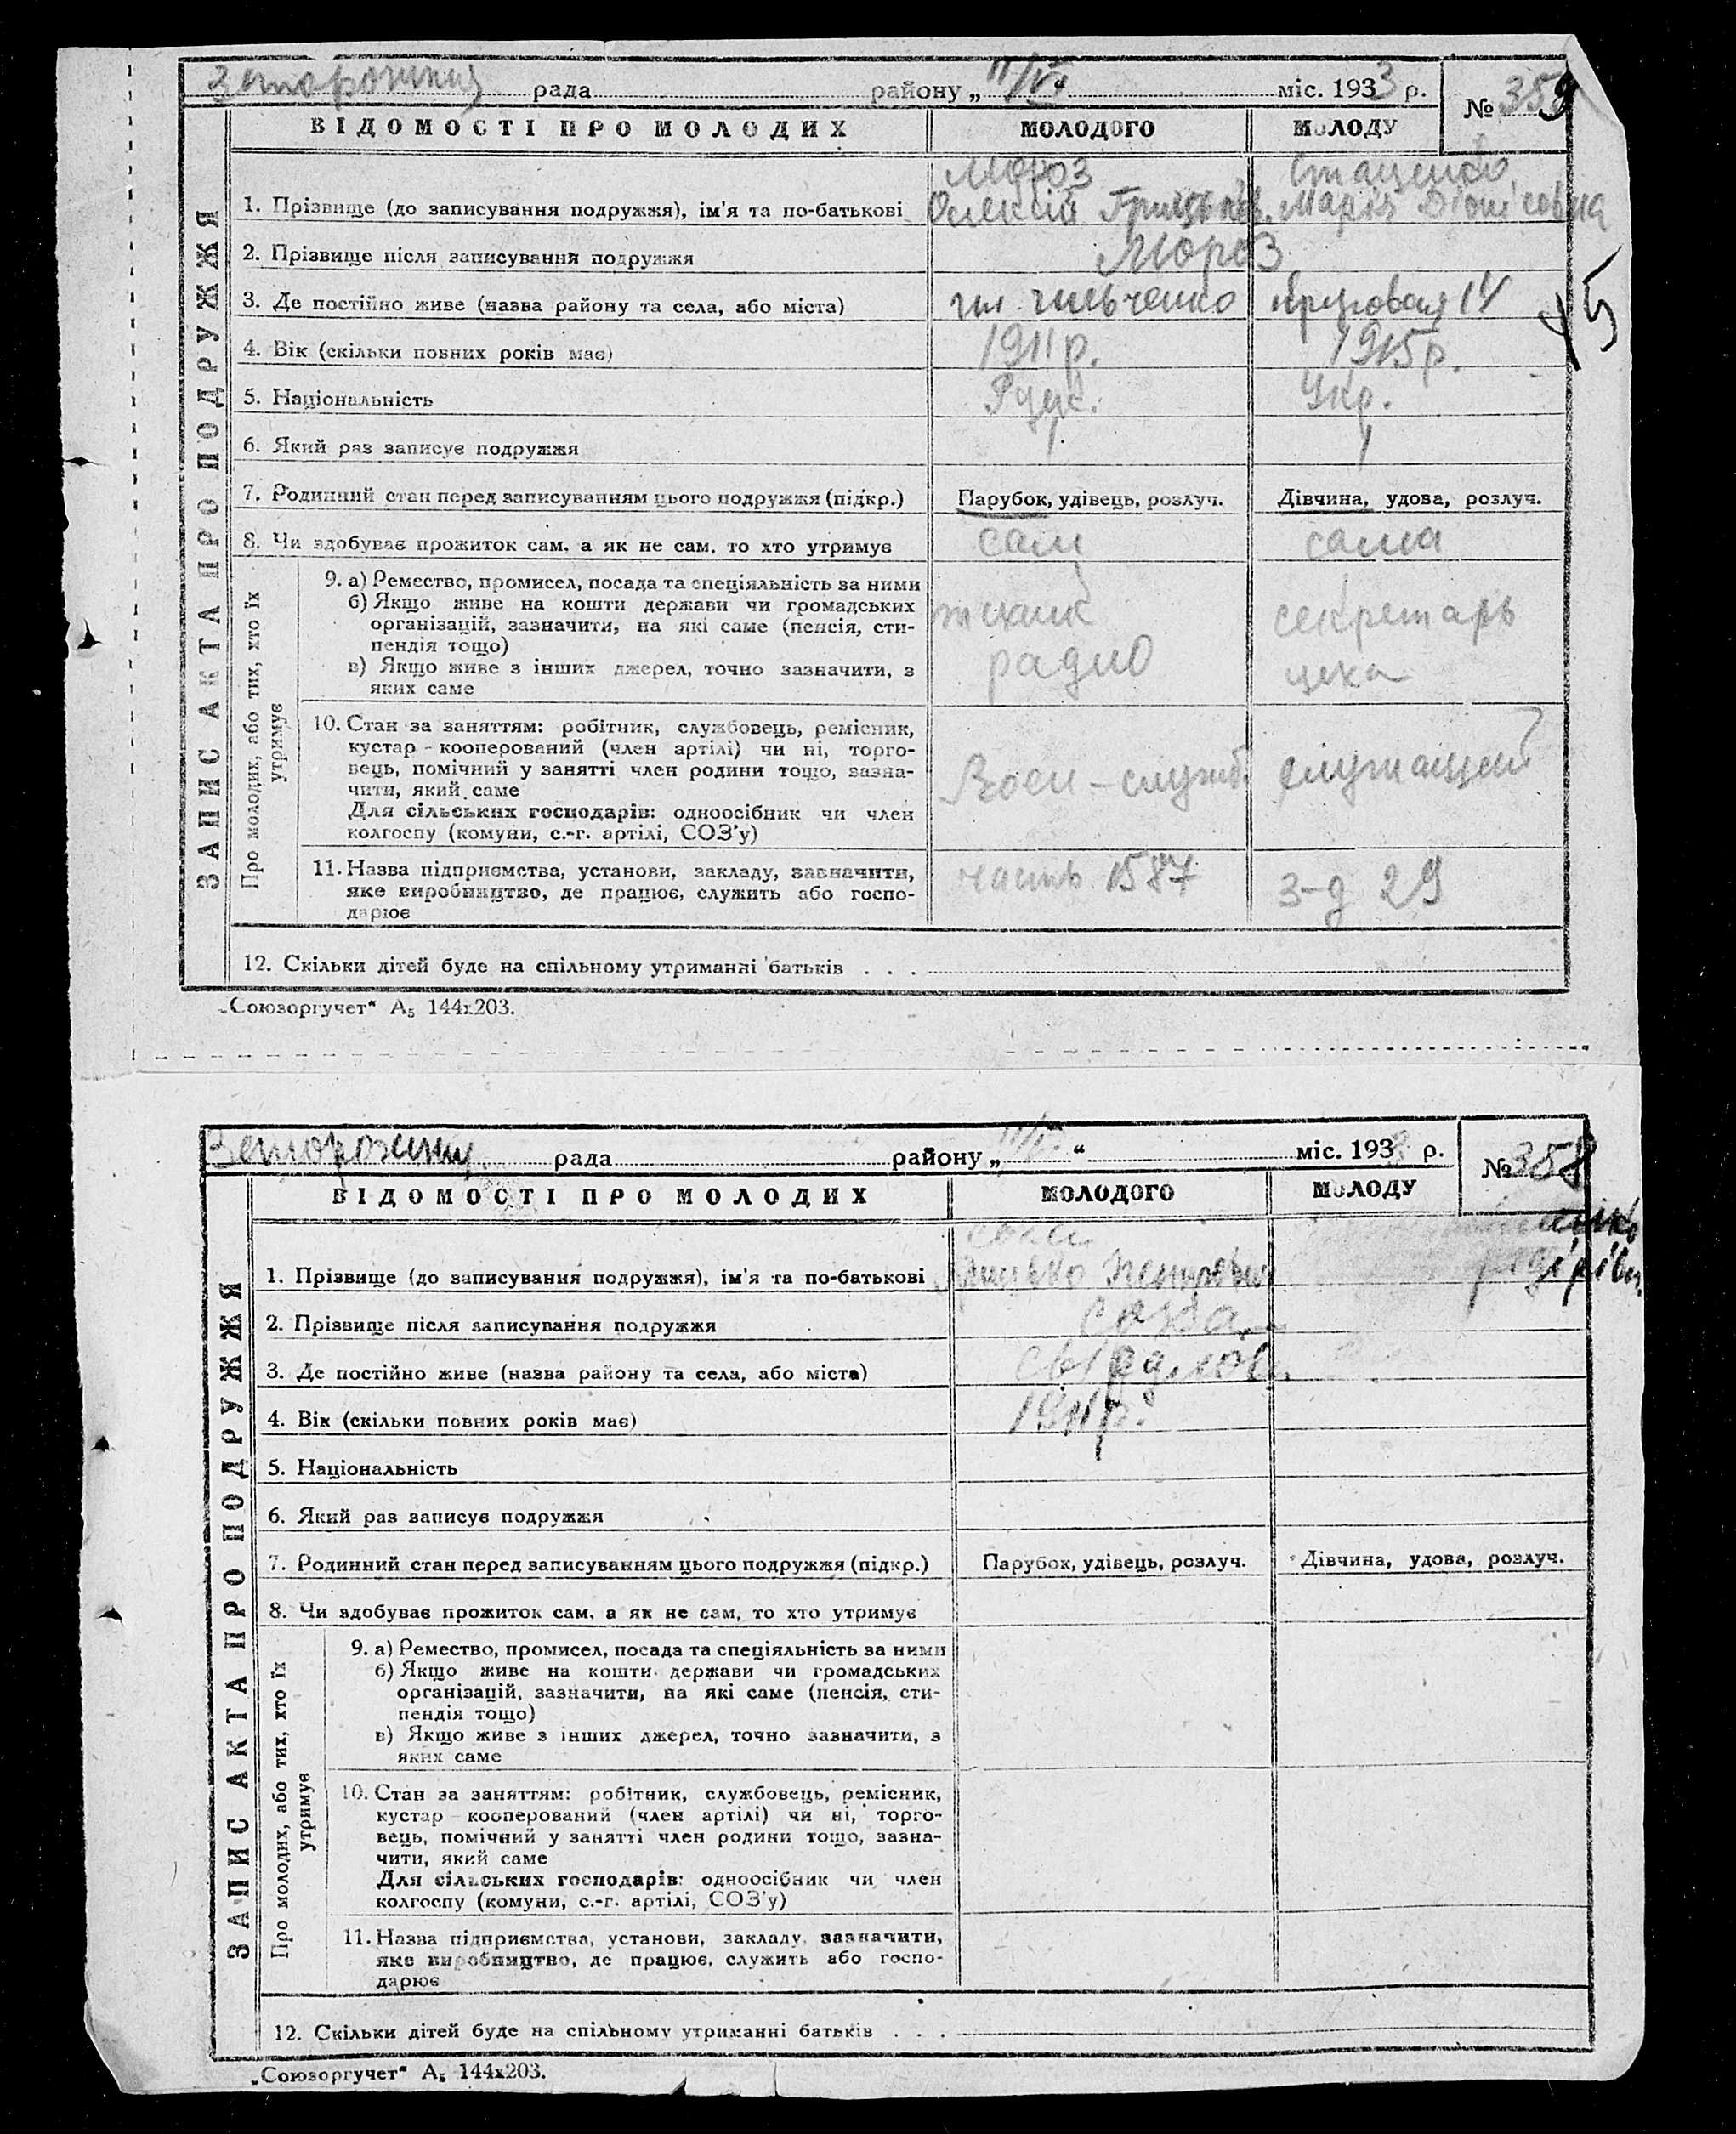 рада району „ " міс. 1933 р.
№ 359
ВІДОМОСТІ ПРО МОЛОДИХ МОЛОДОГО МОЛОДУ
ЗАПИС АКТА ПРО ПОДРУЖЖЯ
Мороз Стаценко
1. Прізвище (до записування подружжя), ім'я та по-батькові Марія
2. Прізвище після записування подружжя Мороз
3. Де постійно живе (назва району та села, або міста) 14
45
4. Вік (скільки повних років має) 1911 р. 1915 р.
5. Національність Укр.
6. Який раз записує подружжя 1 1
7. Родинний стан перед записуванням цього подружжя (підкр.) Парубок, удівець, розлуч. Дівчина, удова, розлуч.
8. Чи здобуває прожиток сам, а як не сам, то хто утримує сам сама
Про молодих, або тих, хто їх утримує
9. а) Ремество, промисел, посада та спеціяльність за ними
б) Якщо живе на кошти держави чи громадських
організацій, зазначити, на які саме (пенсія, сти-
пендія тощо)
в) Якщо живе з інших джерел, точно зазначити, з
яких саме
радио
секретарь
цеха
10. Стан за заняттям: робітник, службовець, ремісник,
кустар - кооперований (член артілі) чи ні, торго-
вець, помічний у занятті член родини тощо, зазна-
чити, який саме
Для сільських господарів: одноосібник чи член
колгоспу (комуни, с.-г. артілі, СОЗ'у)
Воен-служ. служащей
11. Назва підприємства, установи, закладу, зазначити,
яке виробництво, де працює, служить або госпо-
дарює
часть 1587 з-д 29
12. Скільки дітей буде на спільному утриманні батьків . . .
„Союзоргучет" А5 144х203.
рада району „ " міс. 193 р.
№ 358
ВІДОМОСТІ ПРО МОЛОДИХ МОЛОДОГО МОЛОДУ
ЗАПИС АКТА ПРО ПОДРУЖЖЯ
1. Прізвище (до записування подружжя), ім'я та по-батькові
2. Прізвище після записування подружжя
3. Де постійно живе (назва району та села, або міста)
4. Вік (скільки повних років має) 1911 р.
5. Національність
6. Який раз записує подружжя
7. Родинний стан перед записуванням цього подружжя (підкр.) Парубок, удівець, розлуч. Дівчина, удова, розлуч.
8. Чи здобуває прожиток сам, а як не сам, то хто утримує
Про молодих, або тих, хто їх утримує
9. а) Ремество, промисел, посада та спеціяльність за ними
б) Якщо живе на кошти держави чи громадських
організацій, зазначити, на які саме (пенсія, сти-
пендія тощо)
в) Якщо живе з інших джерел, точно зазначити, з
яких саме
10. Стан за заняттям: робітник, службовець, ремісник,
кустар - кооперований (член артілі) чи ні, торго-
вець, помічний у занятті член родини тощо, зазна-
чити, який саме
Для сільських господарів: одноосібник чи член
колгоспу (комуни, с.-г. артілі, СОЗ'у)
11. Назва підприємства, установи, закладу, зазначити,
яке виробництво, де працює, служить або госпо-
дарює
12. Скільки дітей буде на спільному утриманні батьків . . .
„Союзоргучет" А5 144х203.